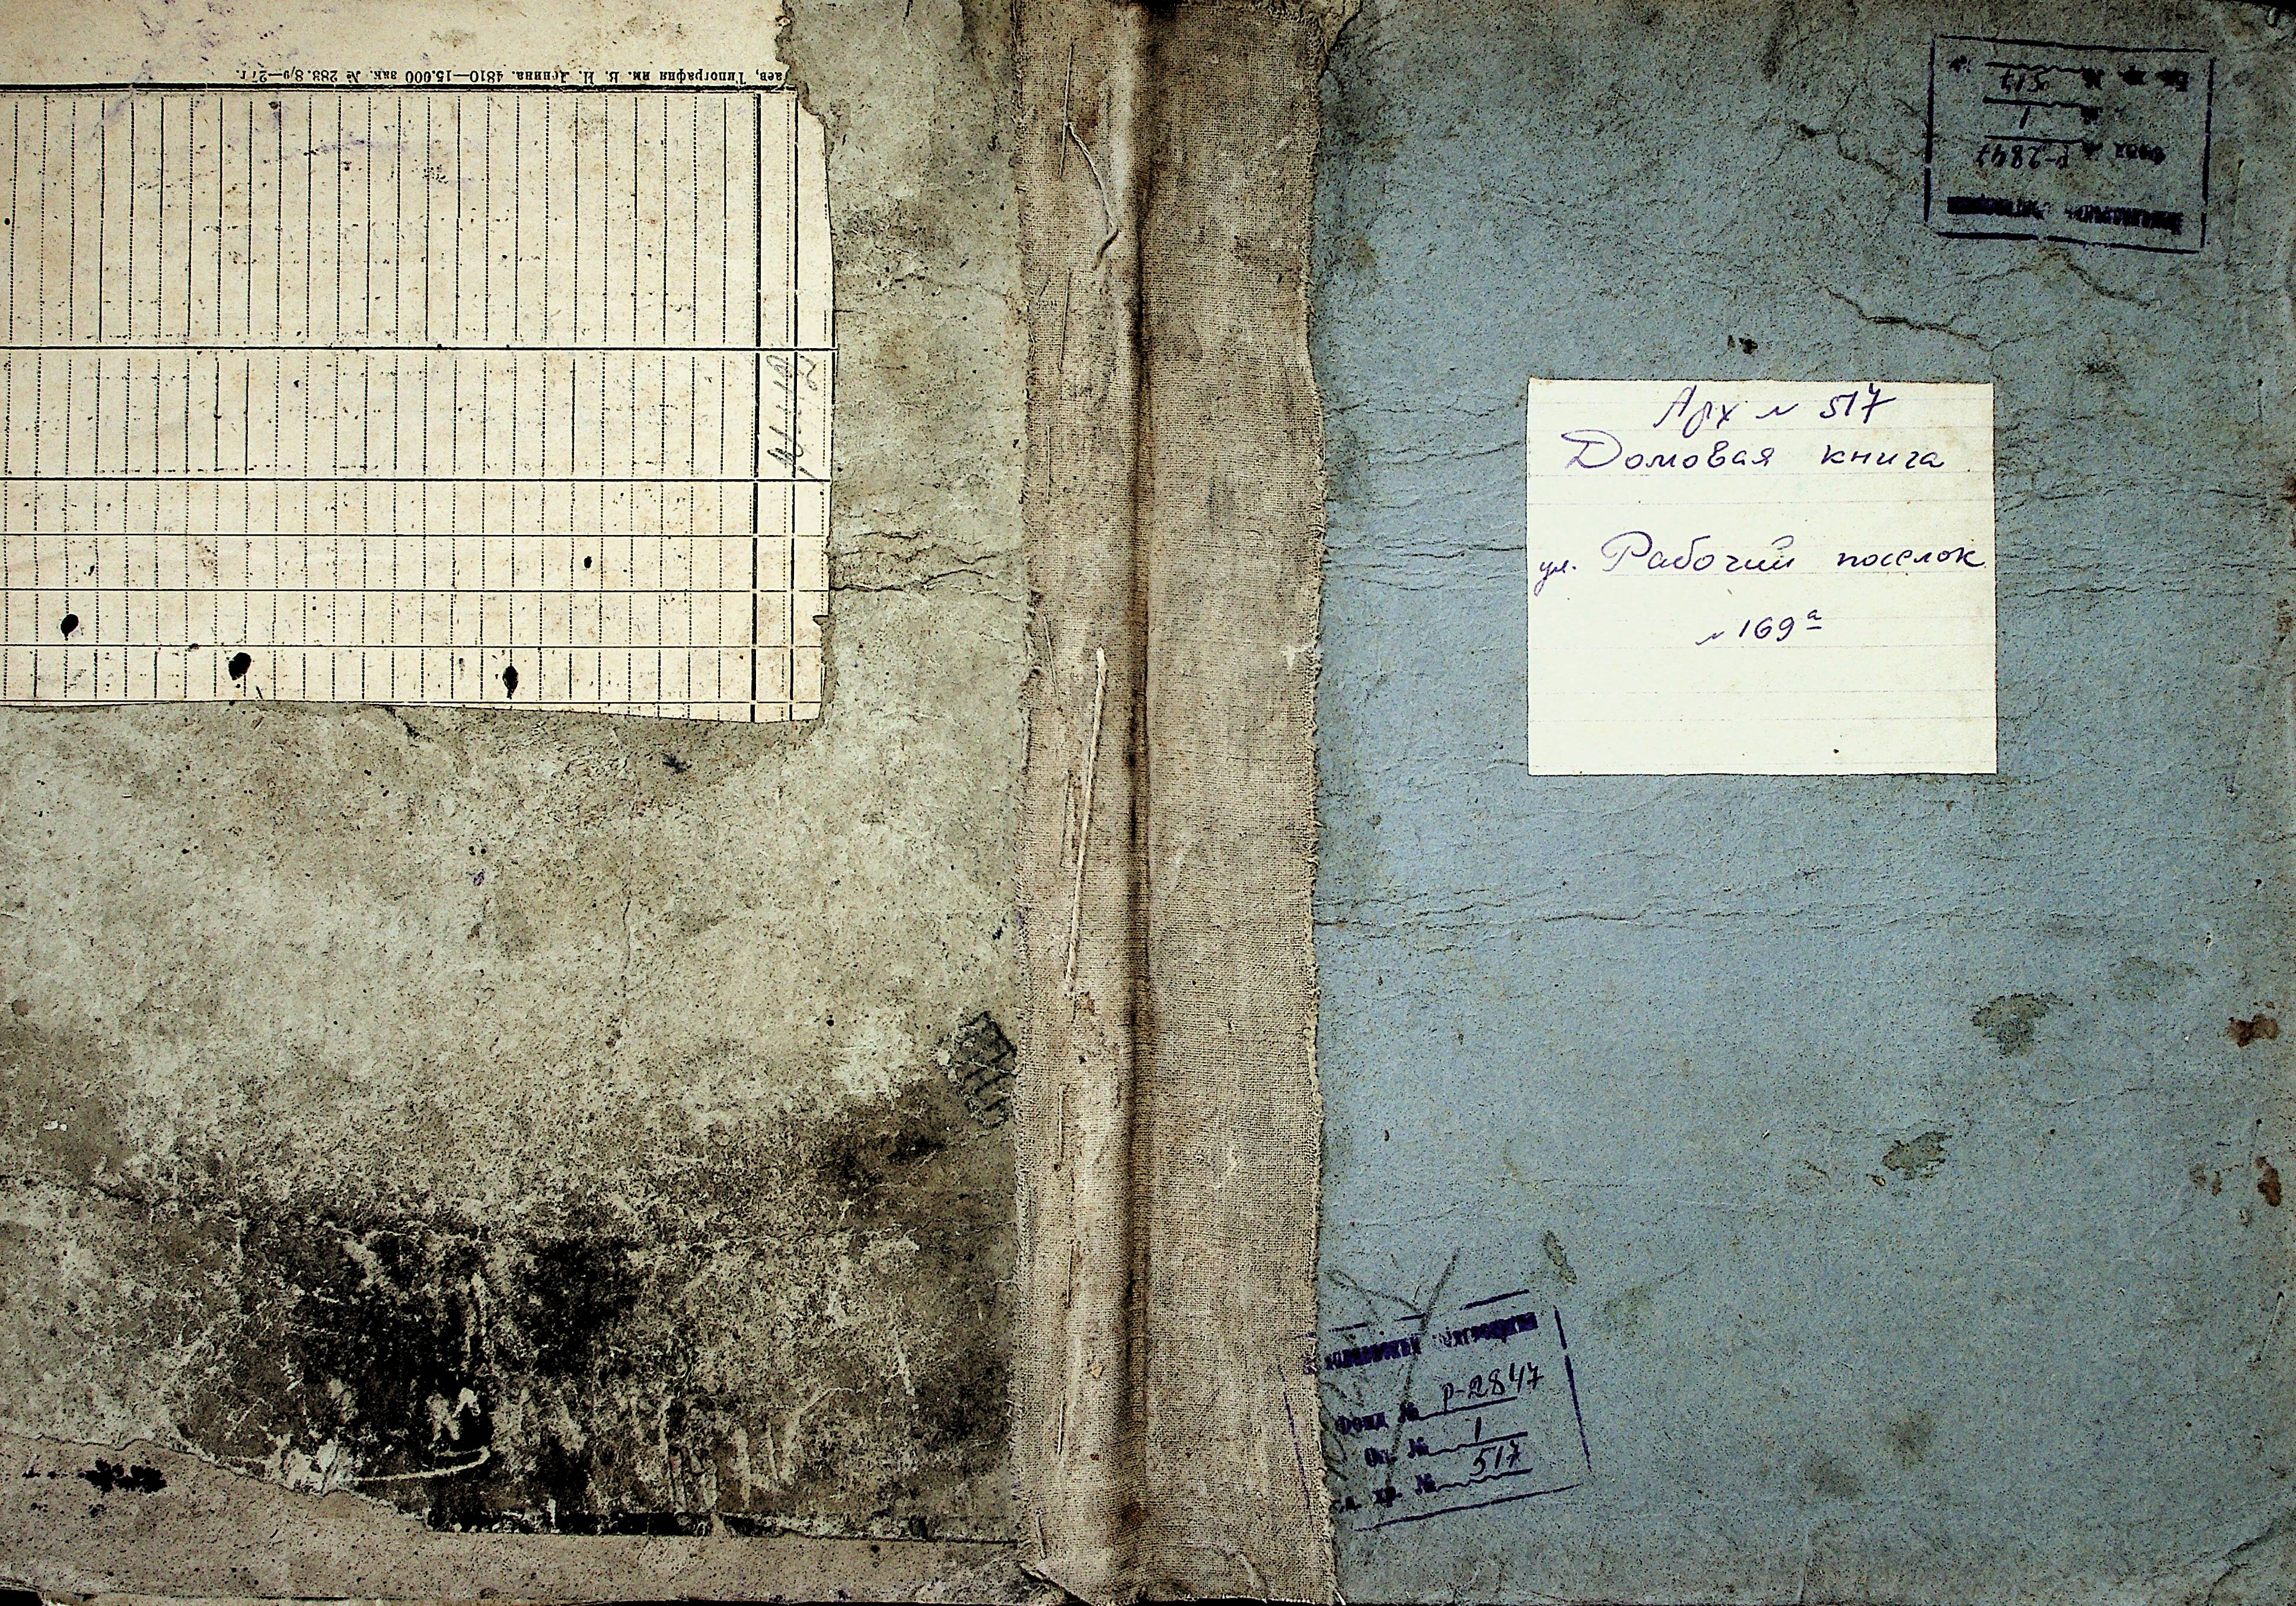 Типография им. В. И. Ленина. 4810—15.000 зак. № 283. 8/9—27 г.
Фонд № Р-2847
№ 1
Ед. хр. № 517
Арх № 517
Домовая книга
ул. Рабочий поселок
№ 169а
Фонд № Р-2847
Оп. № 1
ед. хр. № 517